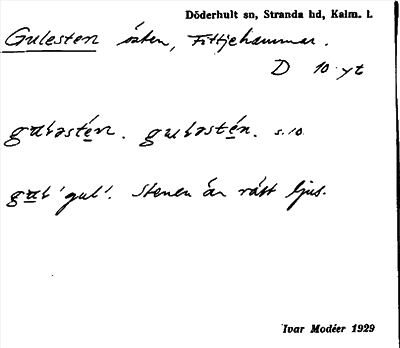 Döderhult sn, Stranda hd, Kalm. l.
Gulesten östen, Fittjehammar.
D 10 yt
guləstén. guləstén. s. 10.
gul 'gul'. Stenen är rätt ljus.
Ivar Modéer 1929